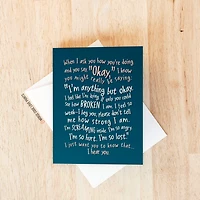 When I ask you how you're doing
and you say
"Okay," I know
you might really be saying:
"I'm anything but okay.
I feel like I'm dying. If only you could
see how BROKEN I am. I feel so
weak—I beg you, please don't tell
me how strong I am.
I'm SCREAMING inside. I'm so angry.
I'm so hurt. I'm so lost."
I just want you to know that...
I hear you.